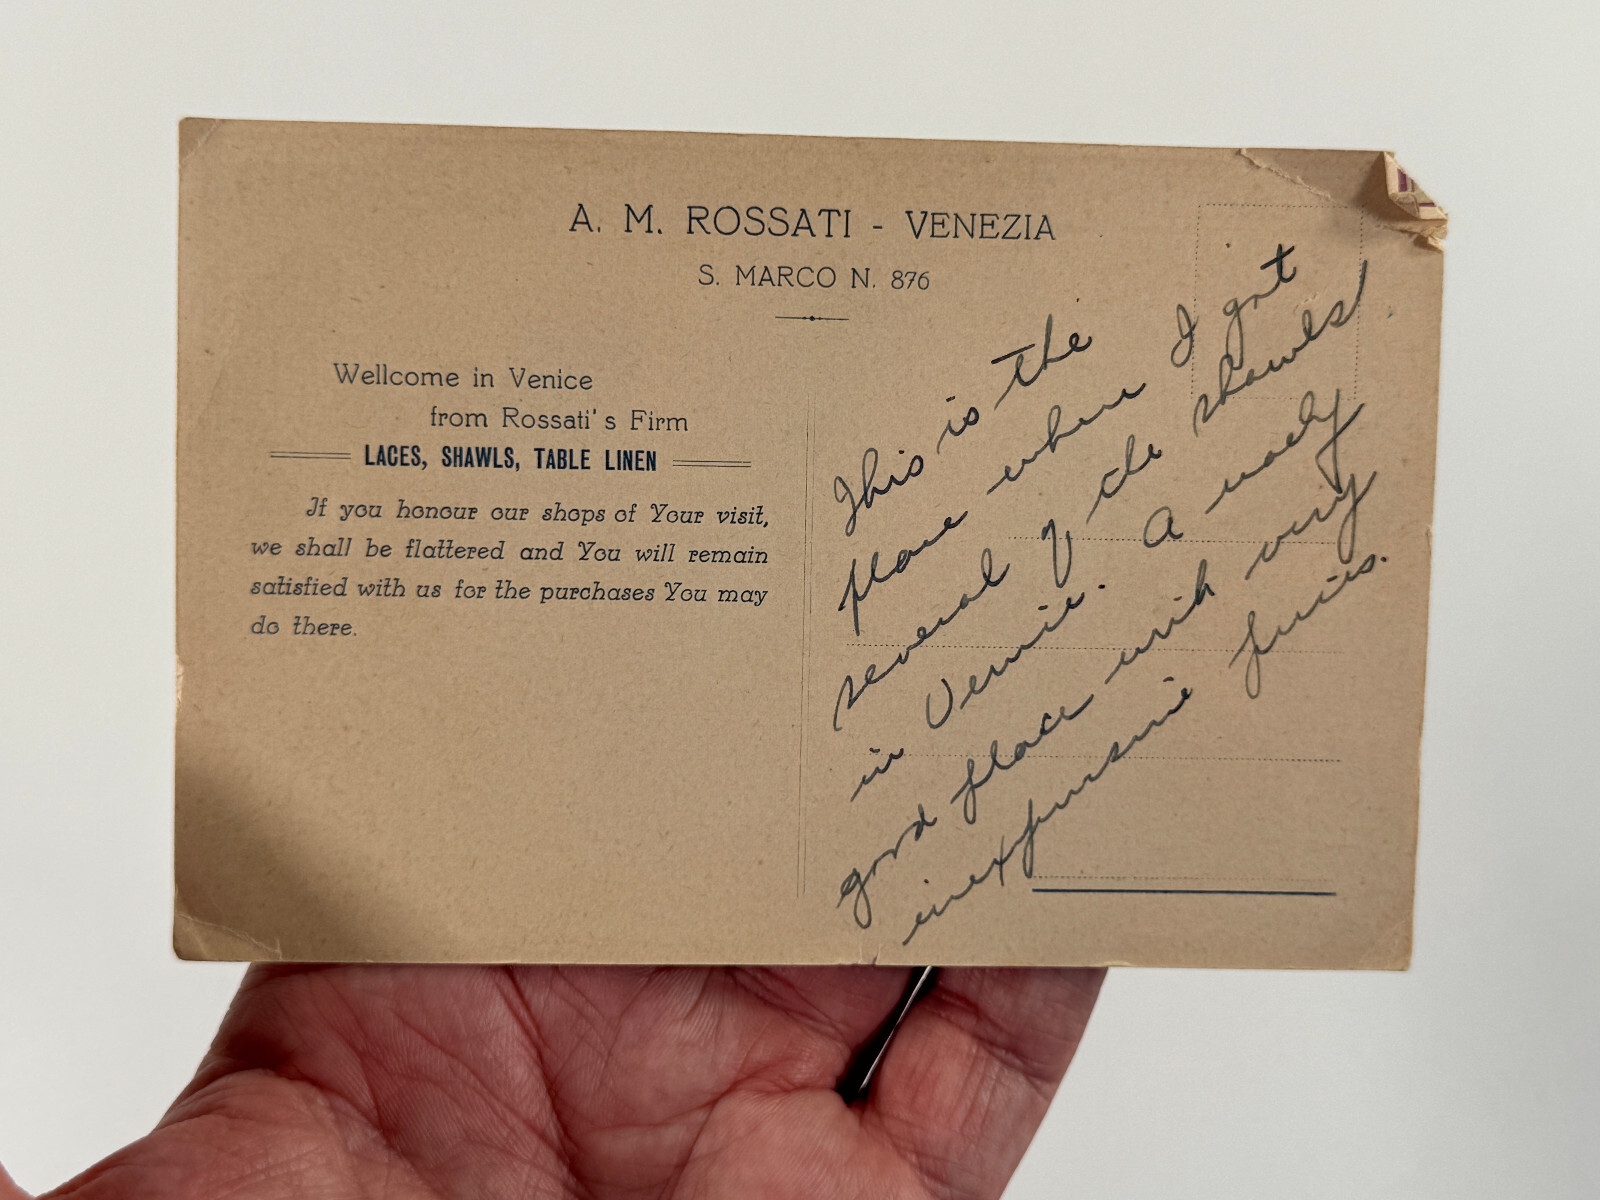 A. M. ROSSATI - VENEZIA
S. MARCO N. 876
Wellcome in Venice
from Rossati's Firm
LACES, SHAWLS, TABLE LINEN
If you honour our shops of Your visit,
we shall be flattered and You will remain
satisfied with us for the purchases You may
do there.
This is the
place where I got
several of the shawls
in Venice. A really
good place with very
inexpensive prices.